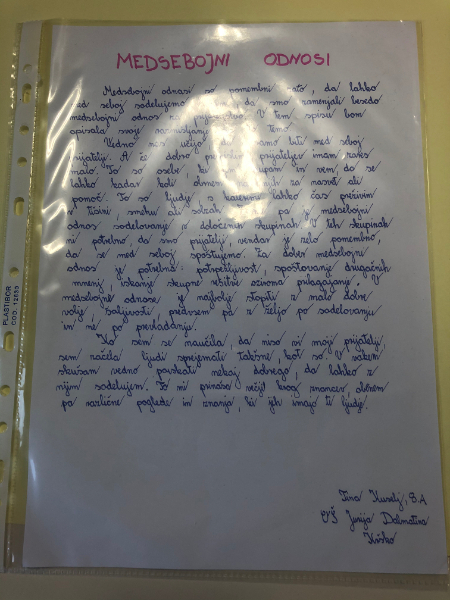 MEDSEBOJNI ODNOSI
Medsebojni odnosi so pomembni zato, da lahko
med seboj sodelujemo
medsebojni odnos
opisala svoje razmišljanje temo
Vedno nas želijo da samo biti med seboj
prijatelji. A če dobro prijateljev imam zares
malo. To so osebe, ki jim zaupam in vem da se
lahko kadar koli obrnem za nasvet ali
pomoč. To so ljudje s katerimi lahko čas preživim
v tišini, smehu ali solzah pa je medsebojni
odnos sodelovanje v določenih skupinah. V teh skupinah
ni potrebno da smo prijatelji, vendar je zelo pomembno,
da se med seboj spoštujemo. Za dober medsebojni
odnos je potrebna potrpežljivost, spoštovanje drugačnih
mnenj, iskanje skupne rešitve oziroma prilagajanje. V
medsebojne odnose je najbolje stopiti z malo dobre
volje, šaljivosti, predvsem pa z željo po sodelovanju
in ne po prevladanju.
Ko sem se naučila, da niso vsi moji prijatelji,
sem začela ljudi sprejemati takšne, kot so. V vsakem
skušam vedno poiskati nekaj dobrega, da lahko z
njim sodelujem. To mi prinaša večji krog znancev, obenem
pa različne poglede in znanja, ki jih imajo ti ljudje.
Tina Kuselj, 8.A
OŠ Jurija Dalmatina
Krško
PLASTIBOR
COD. 12653